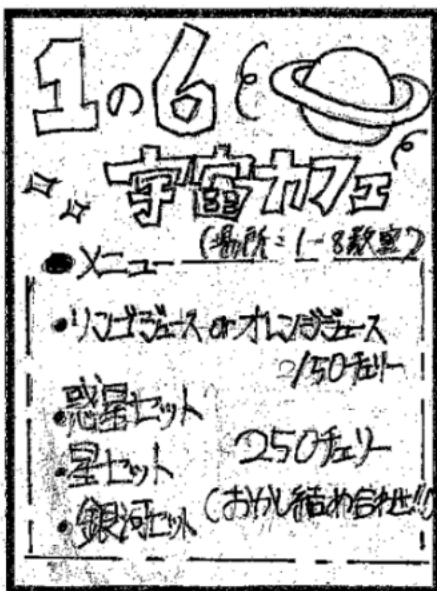 1の6
宇宙カフェ
(場所:1-8教室)
●メニュー
・リンゴジュース or オレンジジュース
150チェリー
・惑星セット
・星セット
250チェリー
・銀河セット
(おかし詰め合わせ!!)